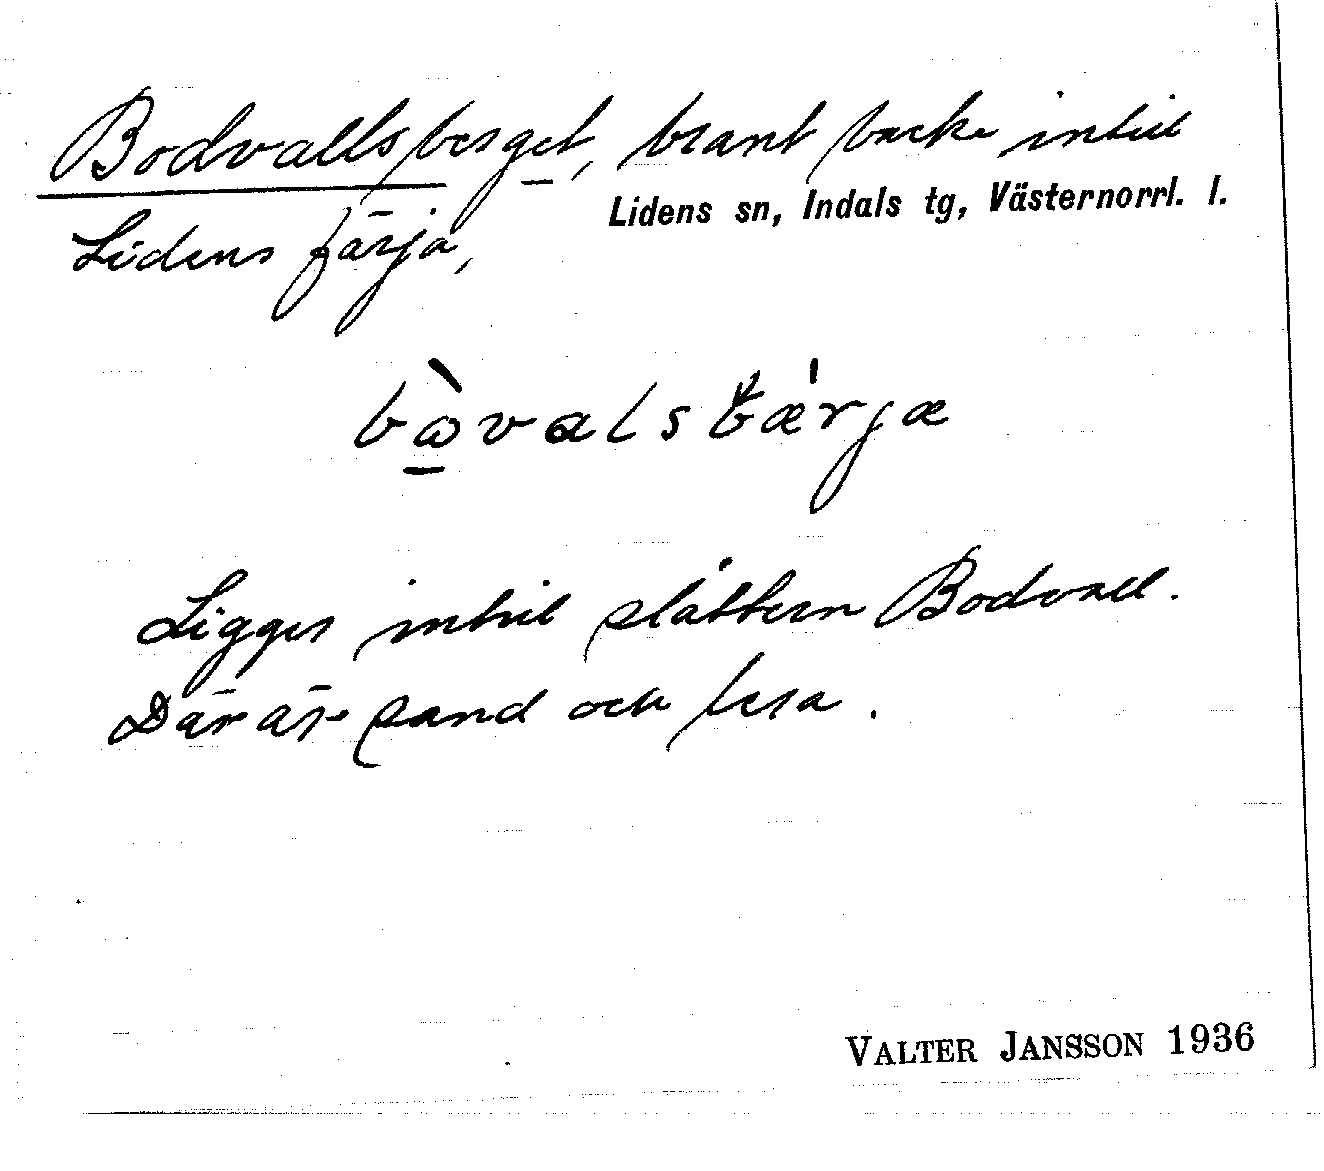 Bodvallsberget, brant backe intill
Lidens sn, Indals tg, Västernorrl. l.
Lidens färja,
Ligger intill slåttern Bodvall.
Där är sand och lera.
VALTER JANSSON 1936